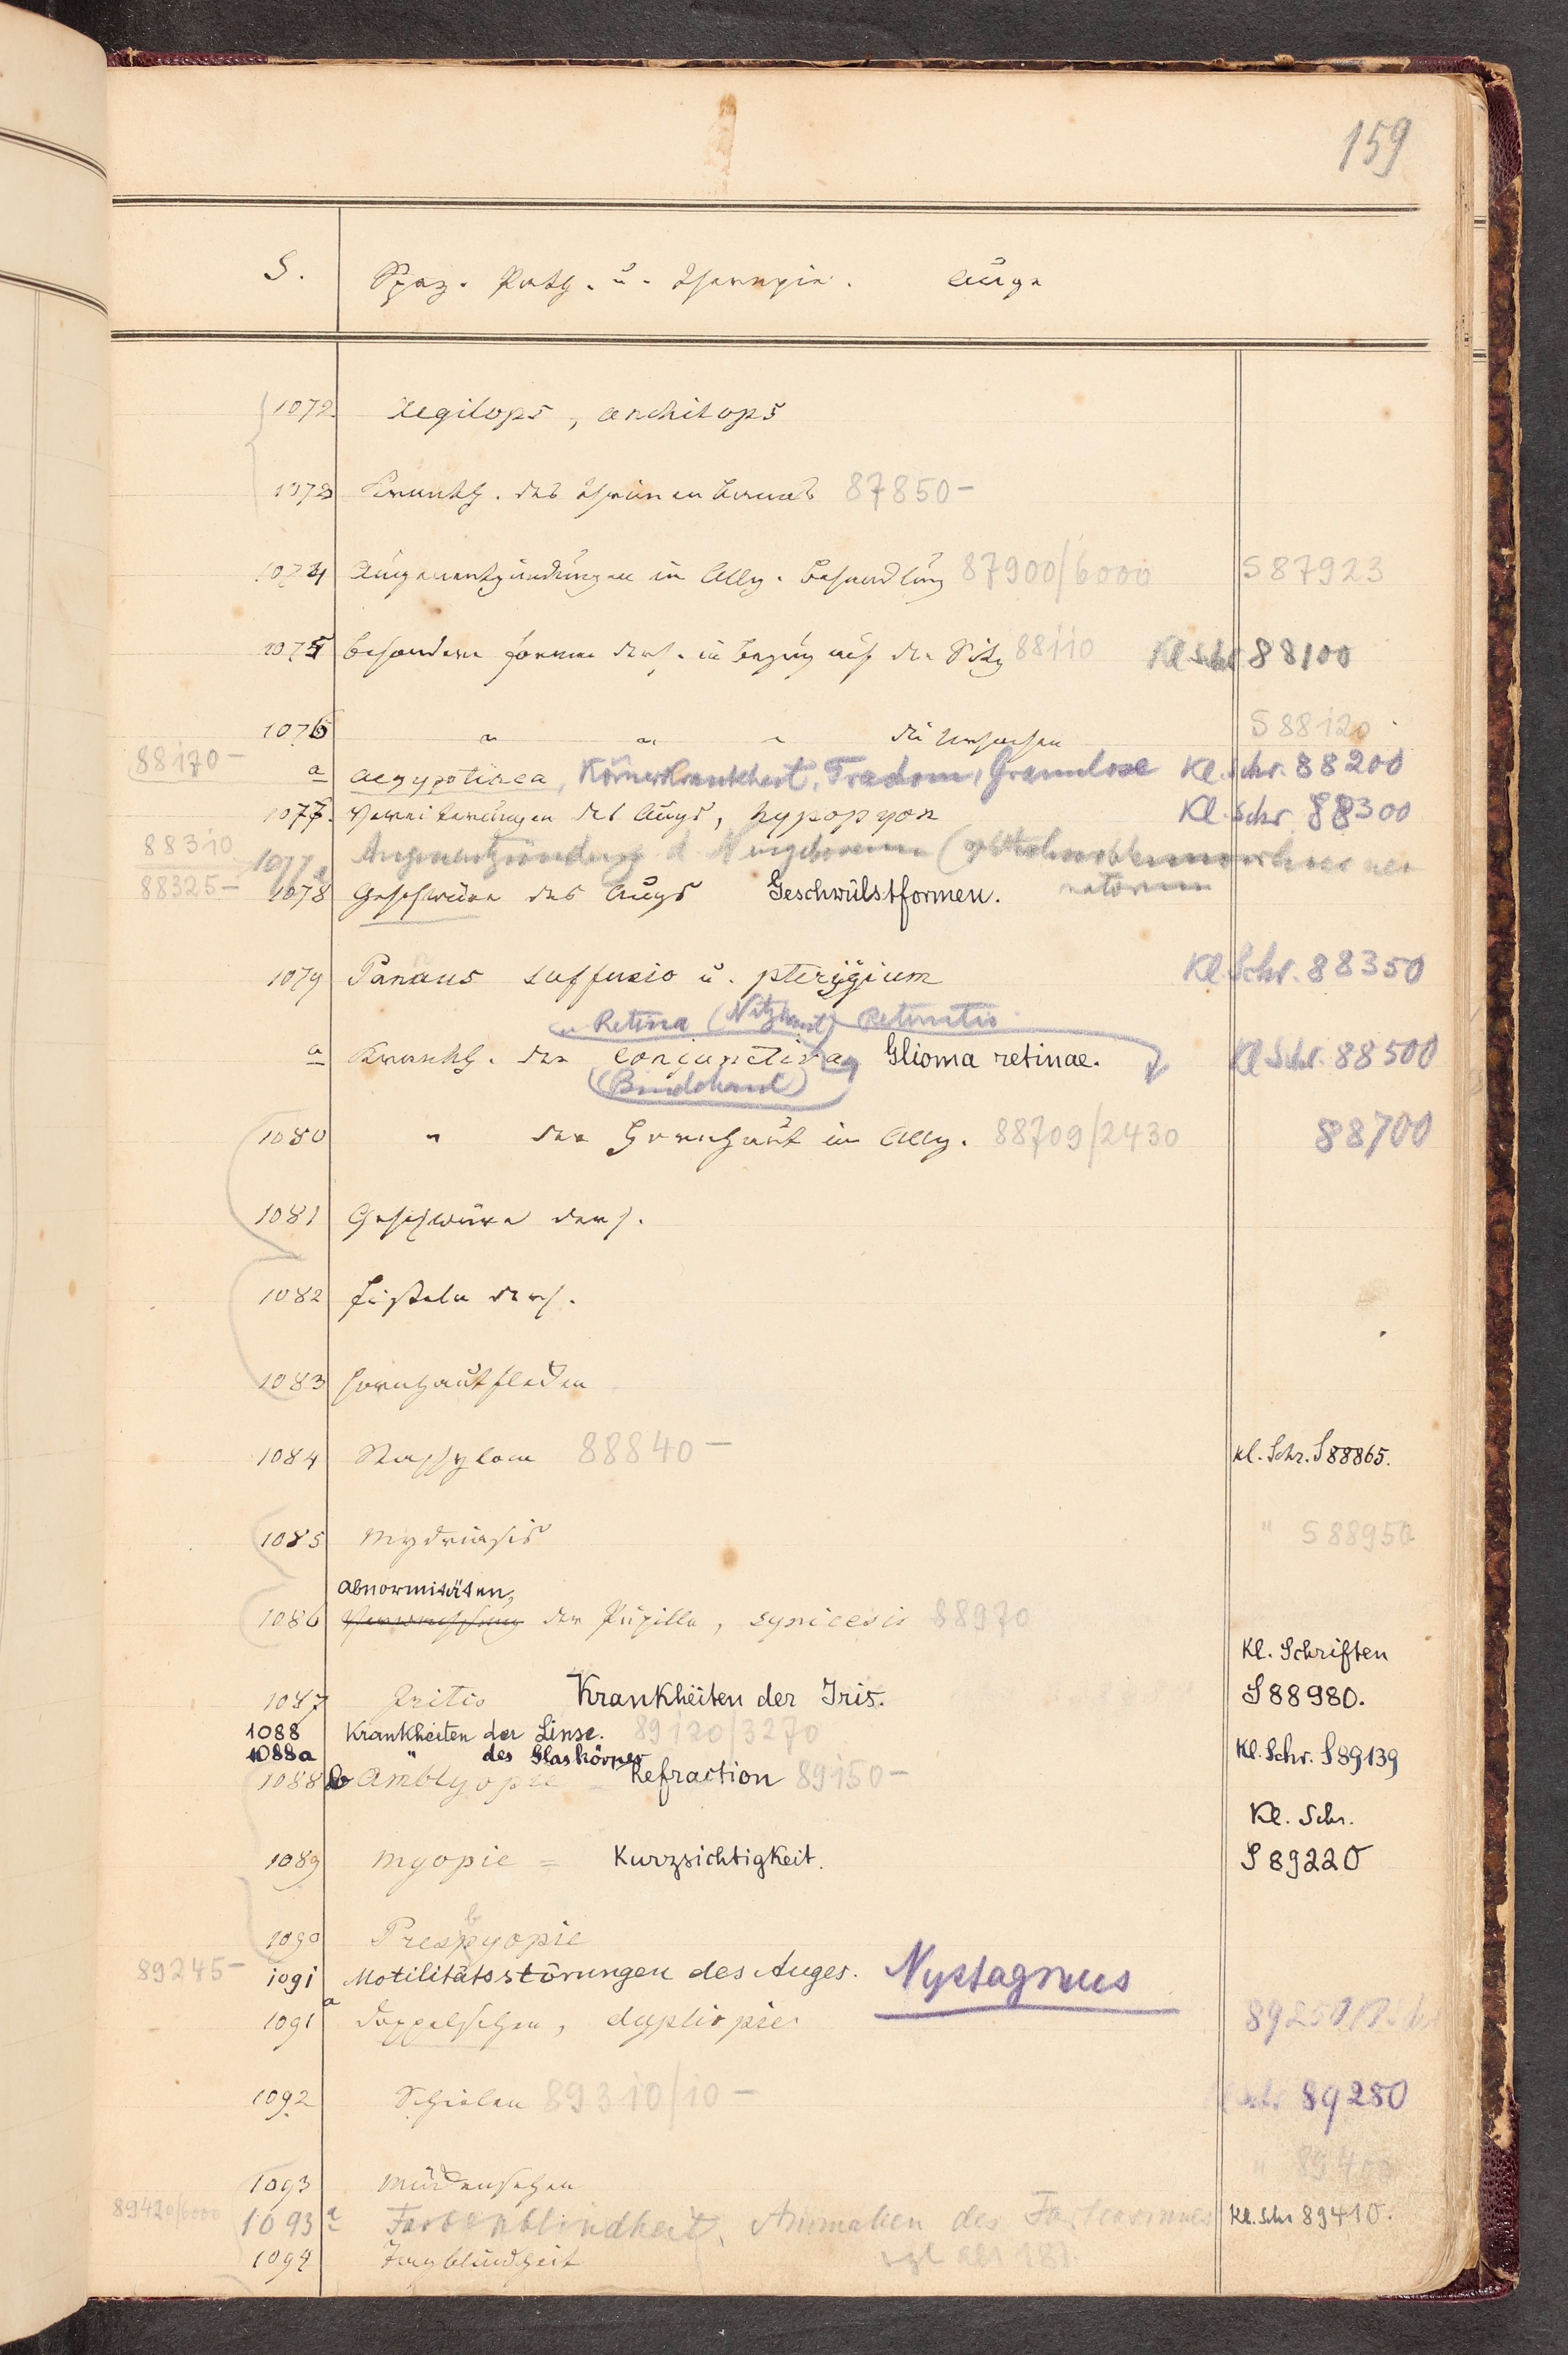 159
S. Spez. Path. u. Therapie. Auge
1072 Aegilops, anchilops
1073 Krankh. des Thränencanals 87850-
1074 Augenentzündungen im Allg. Behandlung 87900/6000 S 87923
1075 besondere Formen ders. in Bezug auf den Sitz 88110 Kl Schr 88100
1076 " " " die Ursachen S 88120
88170- a aegyptiaca, Körnerkrankheit, Trachom, Granulose Kl. Schr. 88200
1077. Vereiterungen des Auges, hypopyon Kl. Schr 88300
88310 1077a Augenentzündung d. Neugeborenen (ophthalmoblennorrhoe neo
natorum
88325- 1078 Geschwüre des Auges Geschwülstformen.
1079 Pannus suffusio u. pterygium Kl. Schr. 88350
u. Retina (Netzhaut) Retinitis
a Krankh. der conjunctiva, Glioma retinae. Kl Schr. 88500
(Bindehaut)
1080 " der Hornhaut im Allg. 88709/2430 88700
1081 Geschwüre ders.
1082 Fisteln ders.
1083 Hornhautflecken
1084 Staphylom 88840- Kl. Schr. S 88865.
1085 Mydriasis " S 88950
Abnormitäten,
1086 der Pupille, synicesis 88970
Kl. Schriften
1087 Iritis Krankheiten der Iris. S 88980.
1088 Krankheiten der Linse. 89120/3270
1088a " des Glaskörpers Kl. Schr. S 89139
1088b Amblyopie - Refraction 89150-
Kl. Schr.
1089 Myopie = Kurzsichtigkeit. S 89220
1090 Presbyopie
89245- 1091 Motilitätsstörungen des Auges. Nystagmus
1091a Doppelsehen, dypliopie 89250
1092 Schielen 89310/10- Schr 89280
1093 Mückensehen " 89400
89420/6000 1093a Farbenblindheit, Anomalien des Farbensinnes Kl. Schr 89410.
1094 Tagblindheit